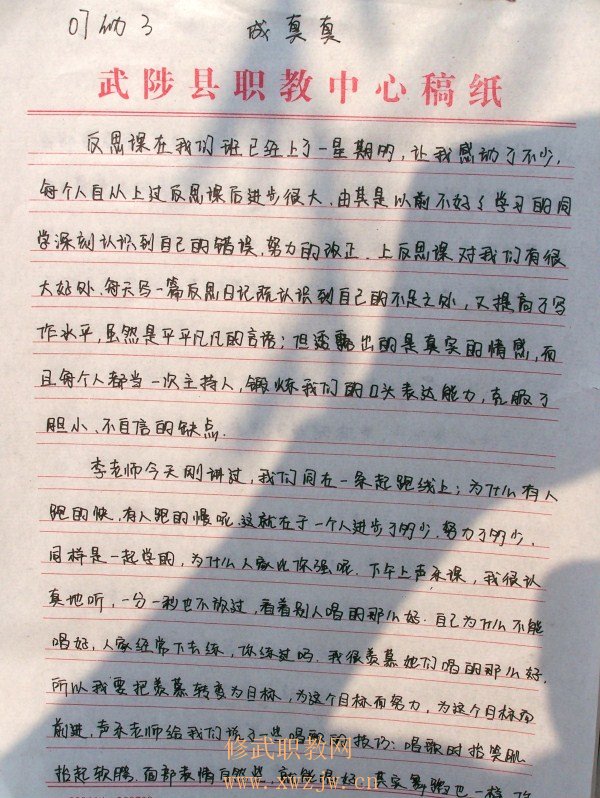 07幼3 成真真
武陟县职教中心稿纸
反思课在我们班已经上了一星期的，让我感动了不少，
每个人自从上过反思课后进步很大，由其是以前不好好学习的同
学深刻认识到自己的错误，努力的改正。上反思课对我们有很
大好处，每天写一篇反思日记既认识到自己的不足之处，又提高了写
作水平，虽然是平平凡凡的言语；但透露出的是真实的情感，而
且每个人都当一次主持人，锻炼我们的口头表达能力，克服了
胆小、不自信的缺点。
李老师今天刚讲过，我们同在一条起跑线上；为什么有人
跑的快，有人跑的慢呢。这就在于一个人进步了多少，努力了多少，
同样是一起学的，为什么人家比你强呢。下午上声乐课，我很认
真地听，一分一秒也不放过，看着别人唱的那么好，自己为什么不能
唱好，人家经常下去练，你练过吗。我很羡慕她们唱的那么好，
所以我要把羡慕转变为目标，为这个目标而努力，为这个目标而
前进，声乐老师给我们说了一些唱歌的技巧：唱歌时抬笑肌
抬起软腭，面部表情自然
修武职教网
www.xwzjw.cn